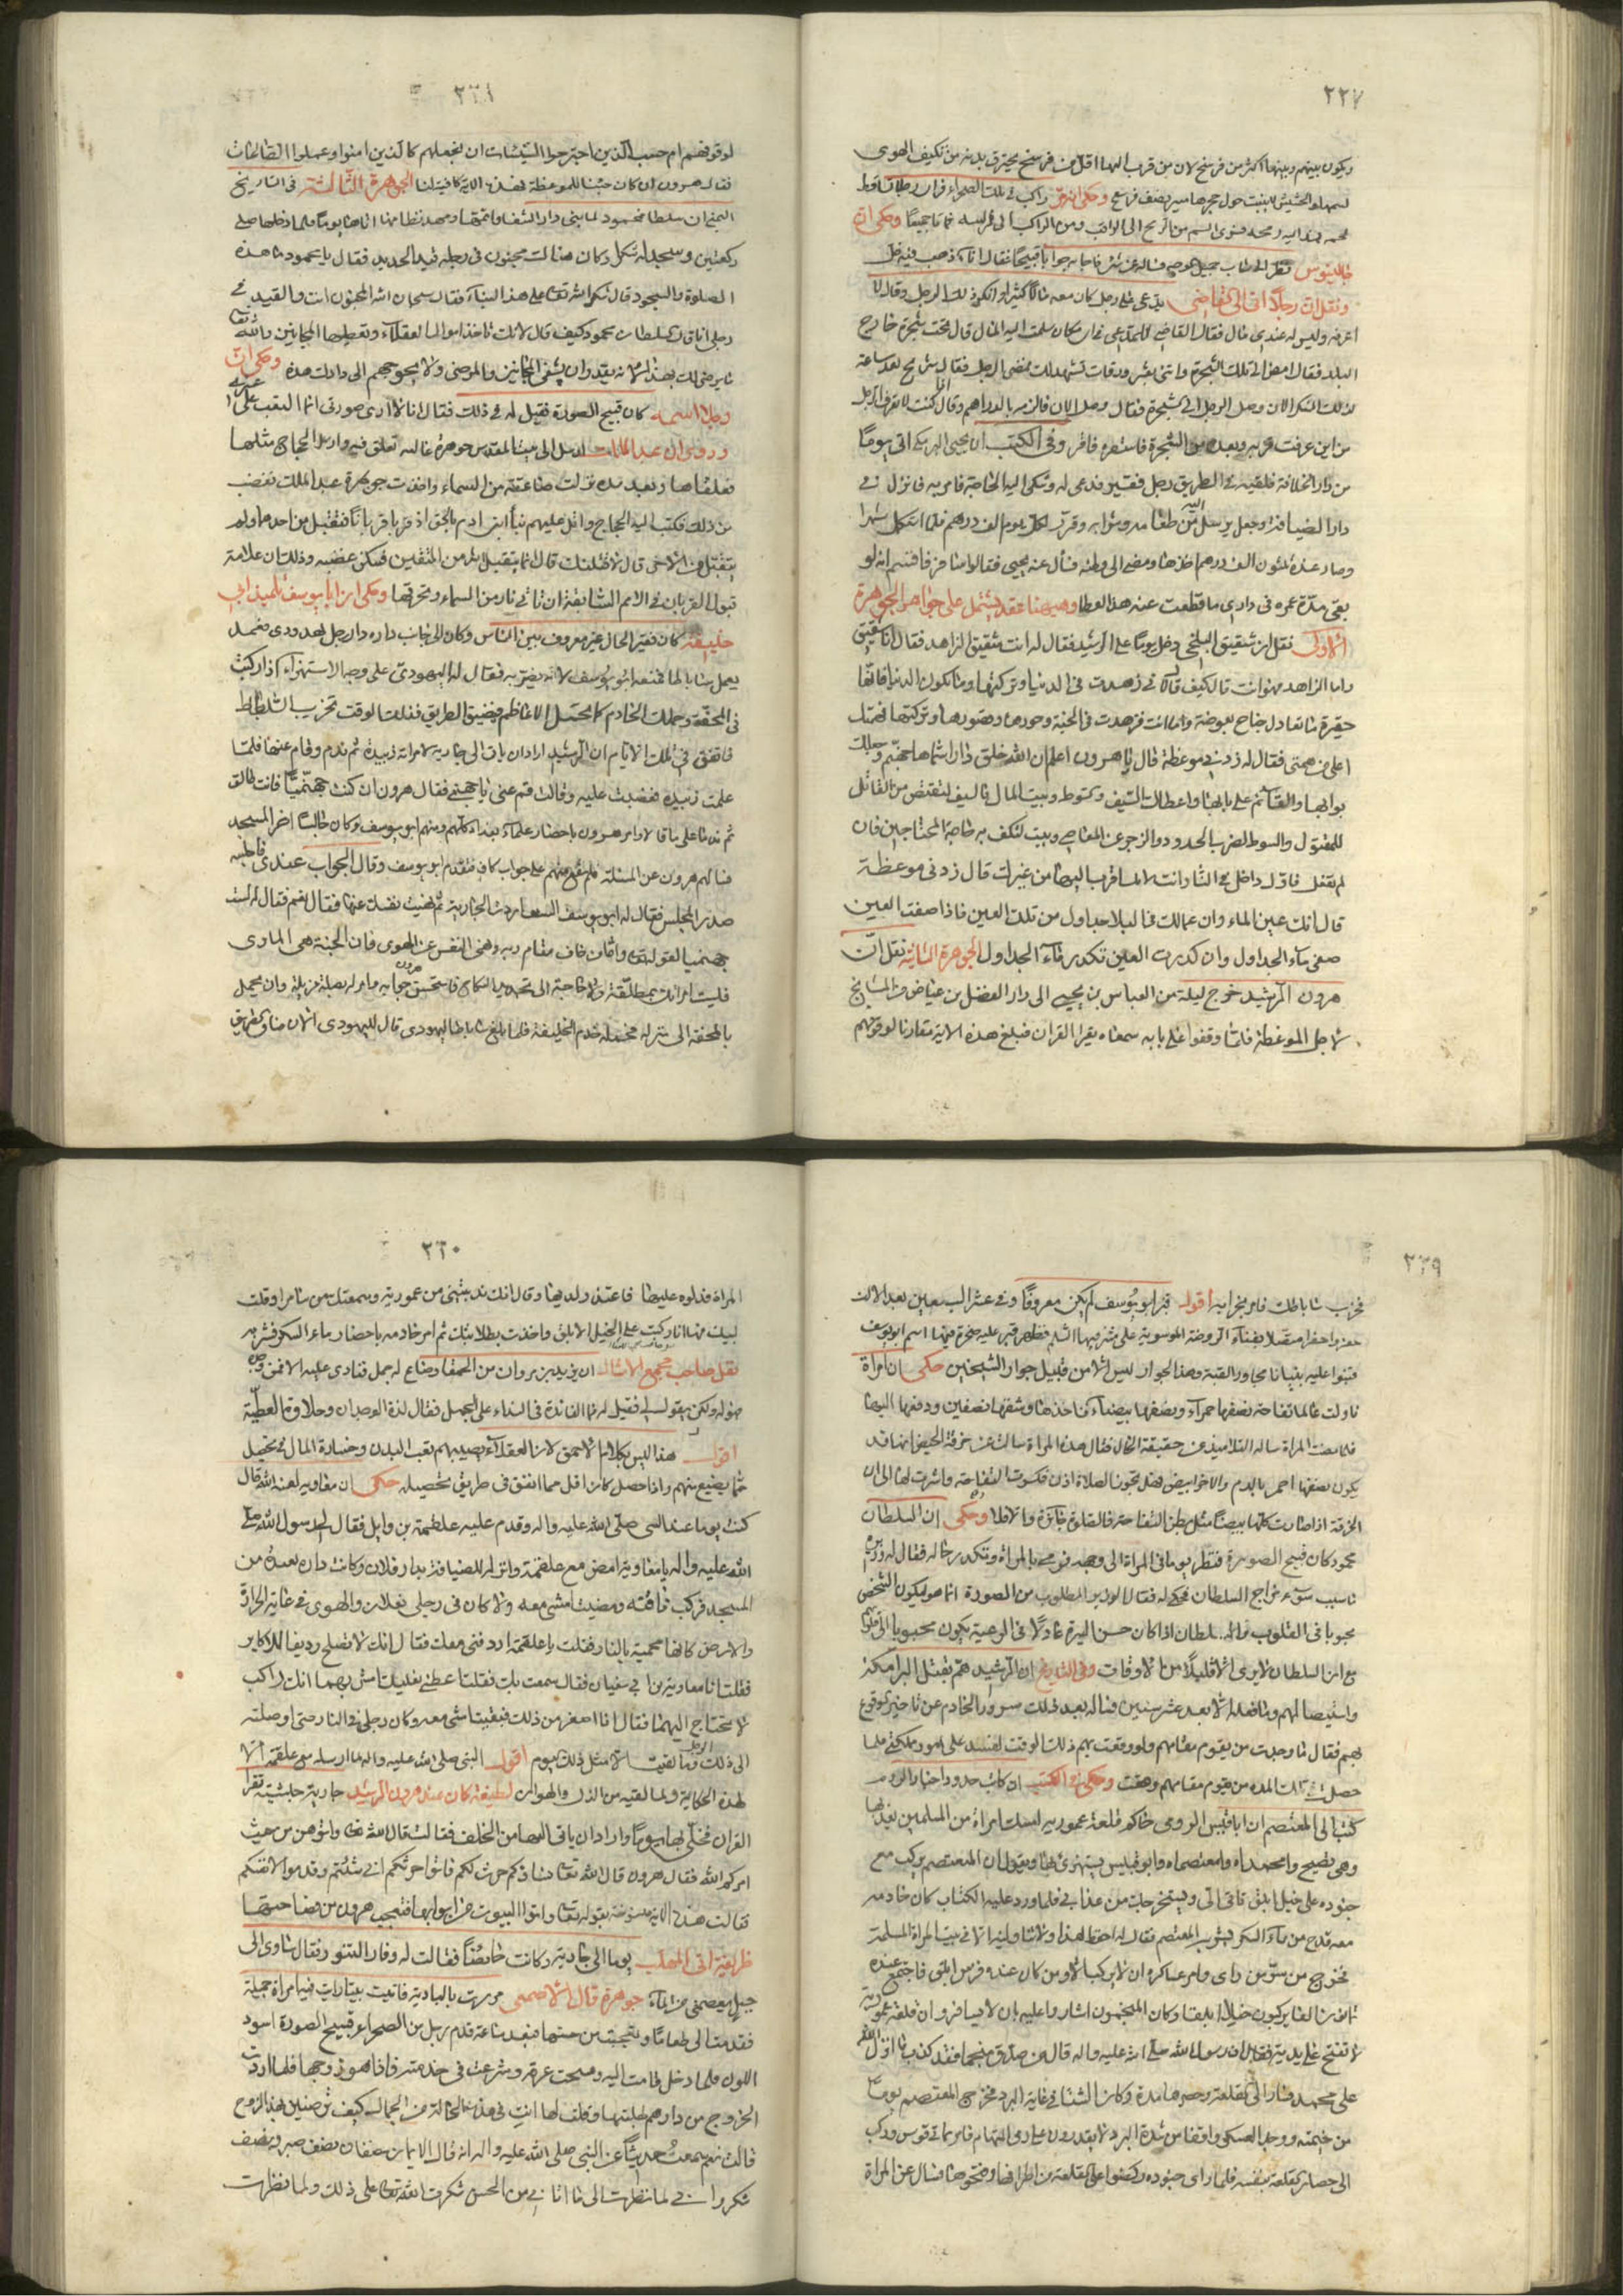 ٢٢٧
ويكون بينهم وبينها اكثر من فرسخ لان من قرب اليها اقل من فرسخ يحترق بدنه من تكيف الهوى
لسمها والحشيش لا ينبت حول جحرها وحكى انه مر راكب في تلك الصحراء
السم من الرمح الى الراكب ومن الراكب الى فرسه فماتا جميعا وحكى ان
جالينوس نظر الى شاب جميل الوجه فساله عن شئ فاجابه جوابا قبيحا فقال اناء ذهب فيه خل
ونقل ان رجلا اتى الى القاضي يدعى على رجل كان معه مالا كثيرا وانكر ذلك الرجل وقال لا
اعرفه وليس له عندي مال فقال القاضي للمدعى في اي مكان سلمت اليه المال قال تحت شجرة خارج
البلد فقال امض الى تلك الشجرة واتني بشئ من ورقات تشهد لك فمضى الرجل فقال شريح بعد ساعة
لذلك المنكر الان وصل الرجل الى الشجرة فقال وصل الان فالزمه بالدراهم وقال كنت لا تعرف الرجل
من اين عرفت قربه وبعده من الشجرة فاستقره فاقر وفي الكتب ان يحيى البرمكي اتى يوما
من دار الخلافة فلقيه في الطريق رجل فقير فدعى له وشكى اليه الحاجة فامر به فانزل في
دار الضيافة وجعل يرسل اليه من طعامه وشرابه وقرر له كل يوم الف درهم فلما استكمل شهرا
وصار عنده ثلثون الف درهم اخذها ومضى الى وطنه فسأل عنه يحيى فقالوا سافر فاقسم انه لو
بقى مدة عمره في داري ما قطعت عنه هذا العطا وهيهنا عقد يشتمل على جواهر الجوهرة
الاولى نقل ان شقيق البلخي دخل يوما على الرشيد فقال له انت شقيق الزاهد فقال انا شقيق
واما الزاهد فهو انت قال كيف قال لانى زهدت في الدنيا وتركتها وما تكون الدنيا فانها
حقيرة ما تعادل جناح بعوضة واما انت فزهدت في الجنة وحورها وقصورها وتركتها فهمتك
اعلى من همتي فقال له زدنى موعظة قال يا هرون اعلم ان الله خلق دارا سماها جهنم وجعلك
بوابها والقائم على بابها واعطاك السيف والسوط وبيت المال فالسيف لتقتص من القاتل
للمقتول والسوط لضرب الحدود والزجر عن المعاصي وبيت المال لتكف به حاجة المحتاجين فان
لم تفعل فاول داخل في النار انت لانك اقرب اليها من غيرك قال زدنى موعظة
قال انك عين الماء وان عمالك في البلاد جداول من تلك العين فاذا صفت العين
صفى ماء الجداول وان كدرت العين تكدر ماء الجداول الجوهرة الثانية نقل ان
هرون الرشيد خرج ليلة مع العباس بن يحيى الى دار الفضل بن عياض من المشايخ
لاجل الموعظة فلما وقفوا على بابه سمعناه يقرا القران فبلغ هذه الاية مقارنا لوقوفهم
٢٢٨
لوقوفهم ام حسب الذين اجترحوا السيئات ان نجعلهم كالذين امنوا وعملوا الصالحات
فقال هرون ان كان جئنا للموعظة فهذه الاية كافية لنا الجوهرة الثالثة في التاريخ
اليمنى ان سلطان محمود لما بنى دار الشفا واتمها ومهد نظامها اتاها يوما فلما دخلها صلى
ركعتين وسجد لله شكرا وكان هنالك مجنون في رجله قيد الحديد فقال يا محمود ما هذه
الصلوة والسجود قال شكر الله تعالى على هذا البناء فقال سبحان الله المجنون انت والقيد في
رجلى انا قال السلطان محمود كيف قال لانك تاخذ اموال العقلاء وتعطيها المجانين والله تعالى
ما يرضى لك بهذا لانه يقدر ان يشفى المجانين والمرضى ولا يحوجهم الى دارك هذه وحكى ان
رجلا اسمه كان قبيح الصورة فقيل له في ذلك فقال انا لا ارى صورتى انما التعب على غيرى
وروى ان عبد الملك ارسل الى بيت المقدس جوهرة غالية تعلق فيه وارسل الحجاج مثلها
فعلقاها وبعد مدة نزلت صاعقة من السماء واخذت جوهرة عبد الملك فغضب
من ذلك فكتب اليه الحجاج واتل عليهم نبأ ابنى ادم بالحق اذ قربا قربانا فتقبل من احدهما ولم
يتقبل من الاخر قال لاقتلنك قال انما يتقبل الله من المتقين فسكن غضبه وذلك ان علامة
قبول القربان في الامم السابقة ان تاتى نار من السماء وتحرقها وحكى ان ابا يوسف تلميذ ابى
حنيفة كان فقير الحال غير معروف بين الناس وكان الى جانب داره دار رجل يهودى فجعل
يعمل ساباطا فمنعه ابو يوسف لانه يضر به فقال له اليهودى على وجه الاستهزاء اذا ركبت
في المحفة وحملك الخادم كما تحمل الاعاظم ويضيق الطريق فذلك الوقت تخرب الساباط
فاتفق في تلك الايام ان الرشيد اراد ان ياتى الى جارية لامراته زبيدة ثم ندم وقام عنها فلما
علمت زبيدة غضبت عليه وقالت قم عنى يا جهنمى فقال هرون ان كنت جهنميا فانت طالق
ثم ندما على ما قالا وامر هرون باحضار علماء بغداد كلهم ومنهم ابو يوسف وكان جالسا اخر المسجد
فسالهم هرون عن المسئلة فلم يقع منهم على جواب كاف فتقدم ابو يوسف وقال الجواب عندى فاجلسه
صدر المجلس فقال له ابو يوسف الست اردت الجارية ثم نهيت نفسك عنها فقال نعم فقال له لست
جهنميا لقوله تعالى واما من خاف مقام ربه ونهى النفس عن الهوى فان الجنة هى الماوى
فليست امراتك بمطلقة ولا حاجة الى تجديد النكاح فاستحسن هرون جوابه وامر له بصلة جزيلة وان يحمل
بالمحفة الى منزله فحمله خدم الخليفة فلما بلغ ساباط اليهودى قال لليهودى الان ضاق الطريق
٢٢٩
فخرب ساباطك فامر بخرابه اقول قبر ابو يوسف لم يكن معروفا وفي عشر السبعين بعد الالف
حفروا حفرا متصلا بفناء الروضة الموسوية على مشرفيها السلام فظهر قبر عليه صخرة فيها اسم ابو يوسف
فبنوا عليه بنيانا مجاور القبة وهذا الجوار ليس الا من قبيل جوار الشيخين حكى ان امراة
ناولت عالما تفاحة نصفها حمراء ونصفها بيضاء فاخذها وشقها نصفين ودفعها اليها
فلما مضت المراة ساله التلاميذ عن حقيقة الحال فقال هذه المراة سالت عن خرقة الحيض انها قد
يكون نصفها احمر بالدم والاخر ابيض فهل تجوز الصلاة اذن فكسرت التفاحة واشرت لها الى ان
الخرقة اذا صارت كلها بيضا مثل بطن التفاحة فالصلوة جائزة والا فلا وحكى ان السلطان
محمود كان قبيح الصورة فنظر يوما في المراة الى وجهه فرمى بالمراة وتكدر حاله فقال له وزيره
ما سبب سوء مزاج السلطان فحكى له فقال الوزير المطلوب من الصورة انما هو ليكون الشخص
محبوبا في القلوب والسلطان اذا كان حسن السيرة عادلا في الرعية يكون محبوبا الى قلوبهم
مع ان السلطان لا يرى الا قليلا من الاوقات وفي التاريخ ان الرشيد هم بقتل البرامكة
واستيصالهم وما فعله الا بعد عشر سنين فساله بعد ذلك سرور الخادم عن تاخير الوقوع
بهم فقال ما وجدت من يقوم مقامهم ولو وقعت بهم ذلك الوقت لفسد على امور مملكتي فلما
حصلت في تلك المدة من يقوم مقامهم وقعت وحكى في الكتب ان كاتب حدود واخبار الروم
كتب الى المعتصم ان ابا قيس الرومى حاكم قلعة عمورية امسك امراة من المسلمين يعذبها
وهى تصيح وا محمداه وا معتصماه وابو قيس يستهزئ بها ويقول ان المعتصم يركب مع
جنوده على خيل ابلق ياتى الى ويستخرجك من عذابى فلما ورد عليه الكتاب كان خادمه
معه قدح من ماء السكر ليشربه المعتصم فقال له احفظ هذا ولا تناولنيه الا في بيت المراة المسلمة
فخرج من سر من راى وامر عساكره ان لا يركب الا من كان عنده فرس ابلق فاجتمع عنده
ثمانون الفا يركبون خيلا ابلقا وكان المنجمون اشاروا عليه بان لا يسافر وان قلعة عمورية
لا تفتح على يديه فقال ان رسول الله صلى الله عليه واله قال من صدق منجما فقد كذب ما انزل الله
على محمد فسار الى القلعة وحصرها مدة وكان الشتا في غاية البرد فخرج المعتصم يوما
من خيمته ووجد العسكر واقفا من شدة البرد لا يقدرون على رمى السهام فامر بماتى قوس وركب
الى حصار القلعة بنفسه فلما راى جنوده ركضوا على القلعة من اطرافها وفتحوها فسال عن المراة
٢٣٠
المراة فدلوه عليها فاعتذر لديها وقال انك ندبتنى من عمورية وسمعتك من سامرا وقلت
لبيك فها انا ركبت على الخيل الابلق واخذت بطلابتك ثم امر خادمه باحضار ماء السكر فشربه
نقل صاحب مجمع الامثال ان يزيد بن بروان من الحمقا وضاع له جمل فنادى عليه الا فمن وجده
فهو له ولكن يقول لى فقيل له فما الفائدة في النداء على الجمل فقال لذة الوجدان وحلاوة العطية
اقول هذا ليس بكلام الاحمق لان العقلاء يصيبهم تعب البدن وخسارة المال في تحصيل
ما يضيع منهم واذا حصل كان اقل مما انفق في طريق تحصيله حكى ان معاوية لعنه الله قال
كنت يوما عند النبى صلى الله عليه واله وقدم عليه علقمة بن وايل فقال لى رسول الله صلى
الله عليه واله يا معاوية امض مع علقمة وانزله للضيافة بدار فلان وكانت داره بعيدة من
المسجد فركب ناقته ومضيت امشى معه ولا كان في رجلى نعلان والهوى في غاية الحرارة
والارض كانها محمية بالنار فقلت يا علقمة اردفنى معك فقال انك لا تصلح رديفا للاكابر
فقلت انا معاوية بن ابى سفيان فقال سمعت بك فقلت اعطنى نعليك امش بهما انك راكب
لا تحتاج اليهما فقال انا اصغر من ذلك فبقيت امشى معه وكان رجلى في النار حتى اوصلته
الى ذلك الرجل وما لقيت الا مثل ذلك اليوم اقول النبى صلى الله عليه واله ما ارسله مع علقمة الا
لهذه الحكاية ولما لقيه من الذل والهوان لطيفة كان عند هرون الرشيد جارية حبشية تقرا
القران فخلى بها يوما واراد ان ياتى اليها من الخلف فقالت قال الله تعالى واتوهن من حيث
امركم الله فقال هرون قال الله تعالى نساؤكم حرث لكم فاتوا حرثكم انى شئتم وقدموا لانفسكم
فقالت هذه الاية منسوخة بقوله تعالى واتوا البيوت من ابوابها فتعجب هرون من فصاحتها
ظريفة اتى المهلب يوما الى جارية وكانت حايضا فقالت له وفار التنور فقال ساوى الى
جبل يعصمنى من الماء جوهرة قال الاصمعى مررت بالبادية فاتيت بيتا رايت فيها امراة جميلة
فقدمت الى طعاما وتعجبت من حسنها فبعد ساعة قدم رجل من الصحراء قبيح الصورة اسود
اللون فلما دخل قامت اليه ومسحت عرقه وشرعت في خدمته فاذا هو زوجها فلما اردت
الخروج من دارهم طلبتها وقلت لها انت في هذه الحالة من الجمال كيف ترضين بهذا الزوج
قالت نعم سمعت حديثا عن النبى صلى الله عليه واله انه قال الايمان نصفان نصف صبر ونصف
شكر وانى لما نظرت الى ما اتانى من الحسن شكرت الله تعالى على ذلك ولما نظرت